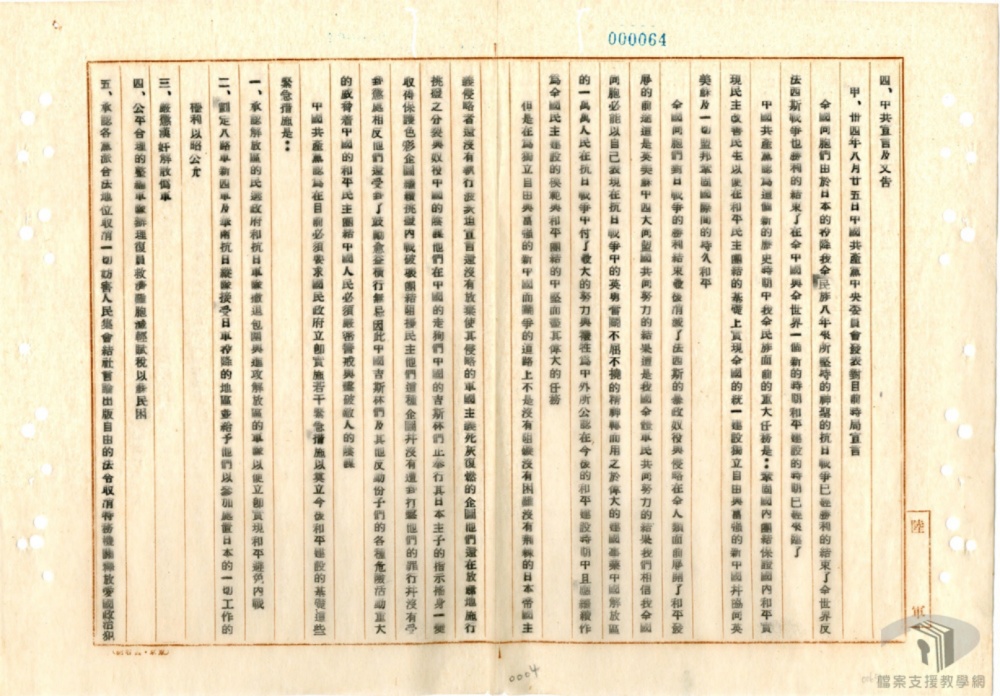 000064
四、中共宣言及文告
甲、卅四年八月廿五日中國共產黨中央委員會發表對目前時局宣言
全國同胞們由於日本的投降我全民族八年來所堅持的神聖的抗日戰爭已經勝利的結束了全世界反
法西斯戰爭也勝利的結束了在全中國與全世界一個新的時期和平建設的時期已經來臨了
中國共產黨認為這個新的歷史時期中我全民族面前的重大任務是：鞏固國內團結保證國內和平實
現民主改善民生以便在和平民主團結的基礎上實現全國的統一建設獨立自由與富強的新中國并協同英
美蘇及一切盟邦鞏固國際間的持久和平
全國同胞對日戰爭的勝利結束最後消滅了法西斯的暴政奴役與侵略在全人類面前展開了和平發
展的前途這是英美蘇中四大同盟國共同努力的結果這是我國全體軍民共同努力的結果我們相信我全國
同胞必能以自己表現在抗日戰爭中的英勇奮鬥不屈不撓的精神轉而用之於偉大的建國事業中國解放區
的一萬萬人民在抗日戰爭中付了最大的努力與犧牲為中外所公認在今後的和平建設時期中且應繼續作
為全國民主建設的模範與和平團結的中堅而盡其偉大的任務
但是在為獨立自由與富強的新中國而鬥爭的道路上不是沒有阻礙沒有困難沒有荊棘的日本帝國主
義侵略者還沒有執行波茨坦宣言還沒有放棄使其侵略的軍國主義死灰復燃的企圖他們還在放肆地施行
挑撥之分裂與奴役中國的陰謀他們在中國的走狗們中國的吉斯林們正奉行其日本主子的指示搖身一變
收得保護色彩企圖繼續挑撥內戰破壞團結阻撓民主他們這種企圖并沒有遭到打擊他們的罪行并沒有受
到懲處相反他們還受到了鼓勵愈益橫行無忌因此中國吉斯林們及其他反動份子們的各種危險活動重大
的威脅着中國的和平民主團結中國人民必須嚴密警戒與擊破敵人的陰謀
中國共產黨認為在目前必須要求國民政府立即實施若干緊急措施以奠立今後和平建設的基礎這些
緊急措施是：
一、承認解放區的民選政府和抗日軍隊撤退包圍與進攻解放區的軍隊以便立即實現和平避免內戰
二、劃定八路軍新四軍及華南抗日縱隊接受日軍投降的地區並給予他們以參加處置日本的一切工作的
權利以昭公允
三、嚴懲漢奸解散偽軍
四、公平合理的整編軍隊辦理復員救濟難胞減輕賦稅以紓民困
五、承認各黨派合法地位取消一切妨害人民集會結社言論出版自由的法令取消特務機關釋放愛國政治犯
陸
軍
0004
檔案支援教學網